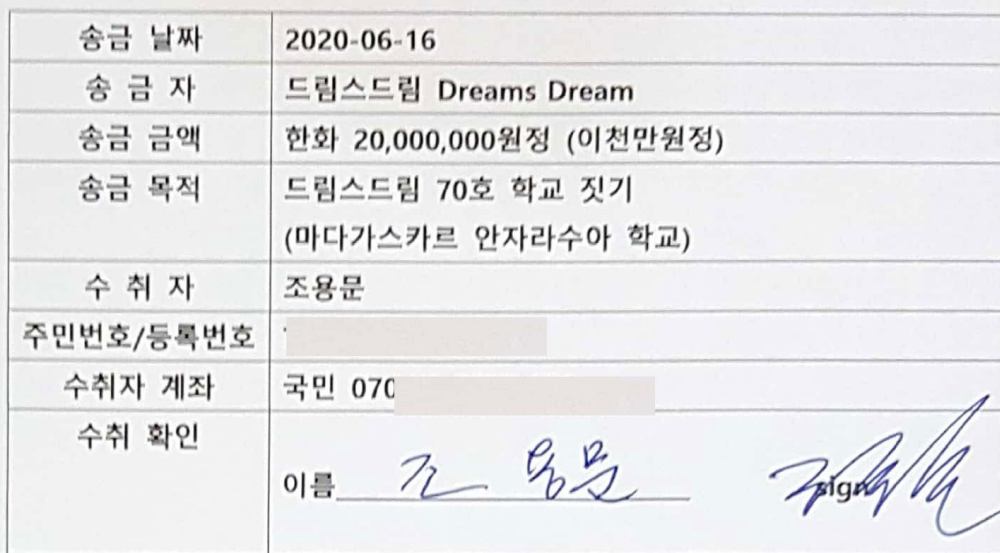 송금 날짜 2020-06-16
송 금 자 드림스드림 Dreams Dream
송금 금액 한화 20,000,000원정 (이천만원정)
송금 목적 드림스드림 70호 학교 짓기
(마다가스카르 안자라수아 학교)
수 취 자 조용문
주민번호/등록번호
수취자 계좌 국민 070
수취 확인
이름 조 용문 sign